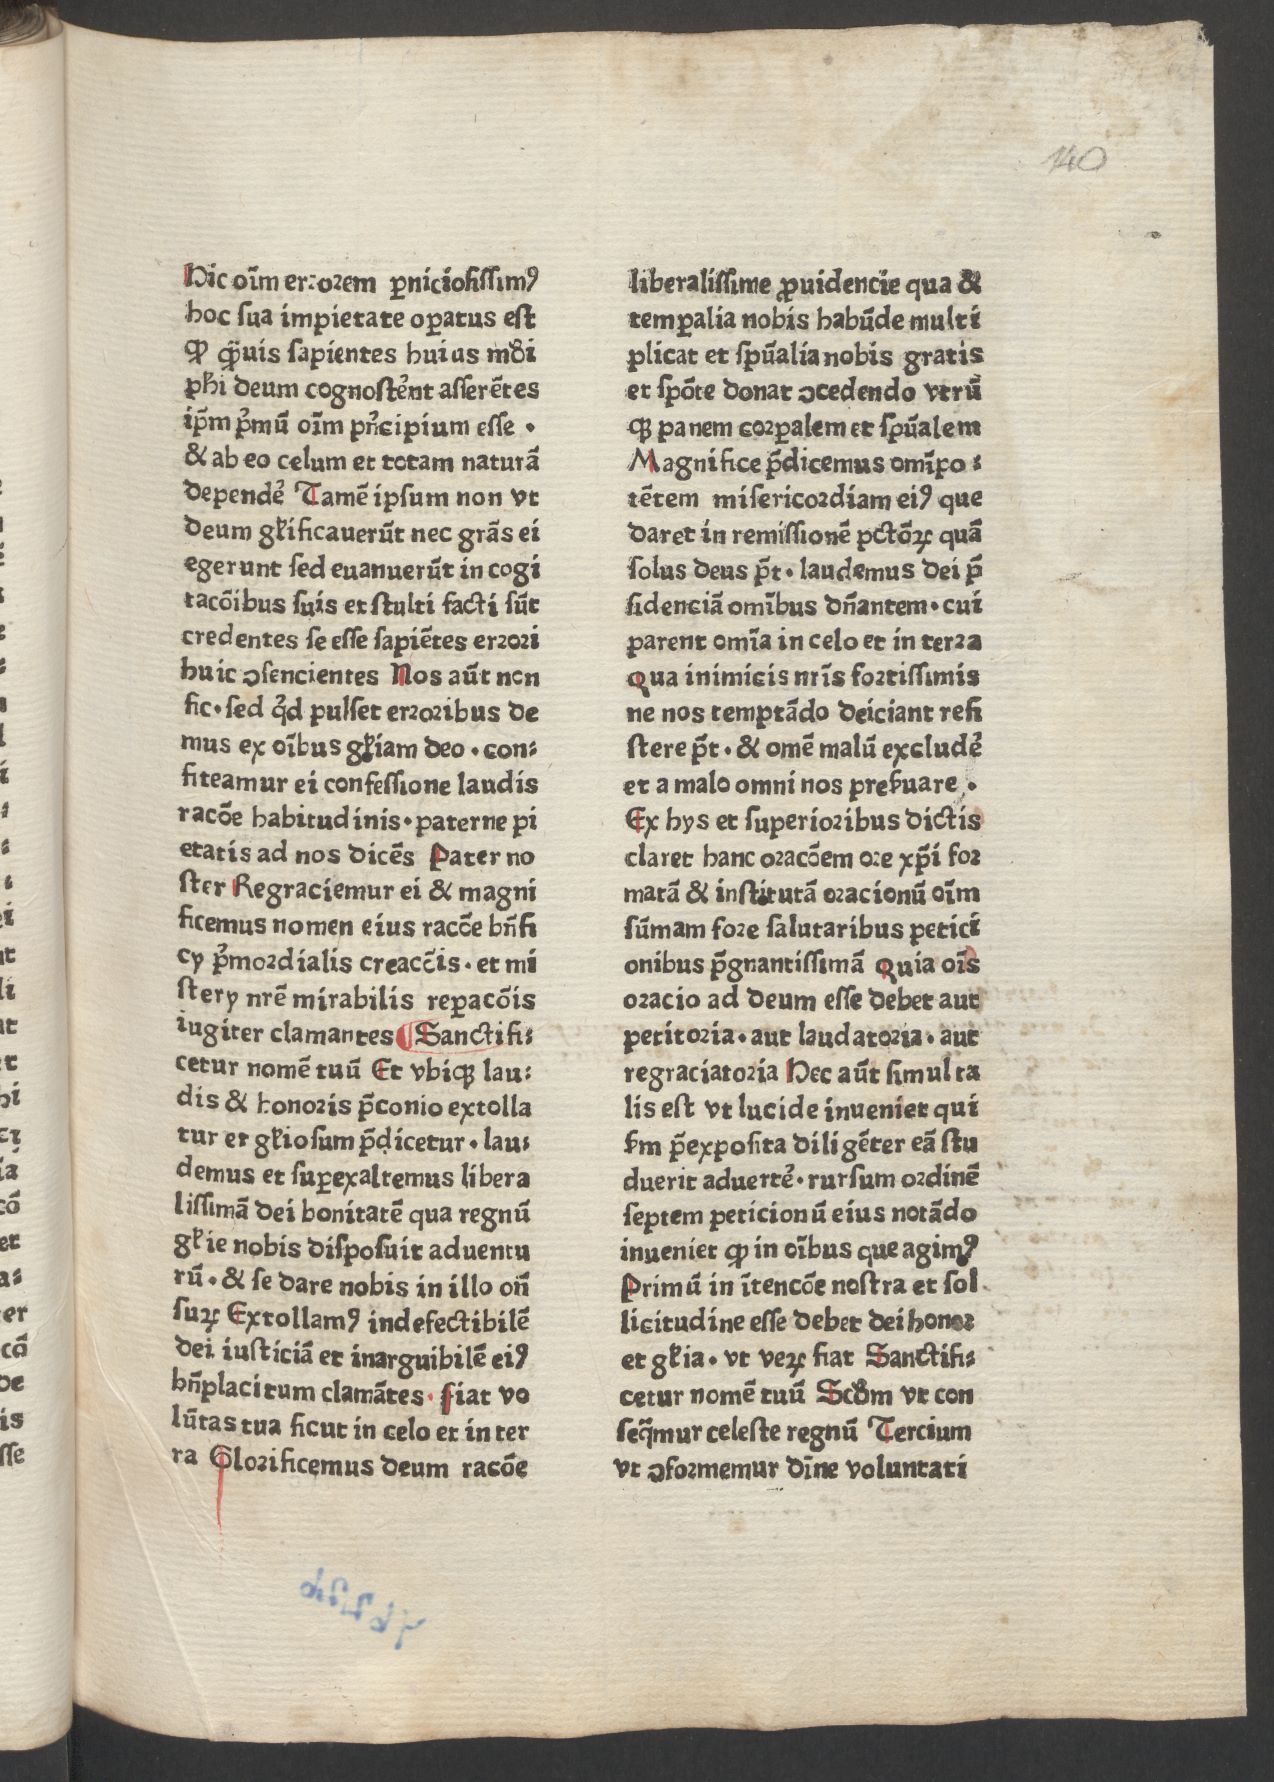 140
Hic oīm errorem ꝑniciosissimꝰ
hoc sua impietate oꝑatus est
ꝙ q̄uis sapientes huius mūdi
ph̄i deum cognoscēnt asserētes
ip̄m p̓mū oīm prīcipium esse ·
& ab eo celum et totam naturā
dependē Tamē ipsum non vt
deum gl̄ificauerūt nec grās ei
egerunt sed euanuerūt in cogi
tacōibus suis et stulti facti sūt
credentes se esse sapiētes errori
huic ↄsencientes Nos aūt non
sic · sed q̓d pulset erroribus de
mus ex oībus gl̄iam deo · con⸗
fiteamur ei confessione laudis
racōe habitudinis · paterne pi
etatis ad nos dicēs Pater no
ster Regraciemur ei & magni
ficemus nomen eius racōe bn̄fi
cy p̓mordialis creacōis · et mi
stery nrē mirabilis reꝑacōis
iugiter clamantes ¶ Sanctifi⸗
cetur nomē tuū Et vbiqꝫ lau⸗
dis & honoris p̄conio extolla
tur et gl̄iosum p̄dicetur · lau⸗
demus et suꝑexaltemus libera
lissimā dei bonitatē qua regnū
gl̄ie nobis disposuit aduentu
rū · & se dare nobis in illo on̄
suꝝ Extollamꝰ indefectibilē
dei iusticiā et inarguibilē eiꝰ
bn̄placitum clamātes · fiat vo
lūtas tua sicut in celo et in ter
ra Glorificemus deum racōe
liberalissime ꝓuidencie qua &
temꝑalia nobis habūde multi
plicat et spūalia nobis gratis
et spōte donat ↄcedendo vtrū
qꝫ panem corꝑalem et spūalem
Magnifice p̄dicemus omīpo⸗
tētem misericordiam eiꝰ que
daret in remissionē pctōꝝ quā
solus deus p̄t · laudemus dei p̄
sidenciā omībus dn̄antem · cui
parent omīa in celo et in terra
Qua inimicis nrīs fortissimis
ne nos temptādo deiciant resi
stere p̄t · & omē malū excludē
et a malo omni nos preẜuare ·
Ex hys et superioribus dictis
claret hanc oracōem ore xp̄i for
matā & institutā oracionū oīm
sūmam fore salutaribus petici
onibus p̄gnantissimā Quia oīs
oracio ad deum esse debet aut
petitoria · aut laudatoria · aut
regraciatoria Hec aūt simul ta
lis est vt lucide inueniet qui
ẜm p̄exposita diligēter eā stu
duerit aduertē · rursum ordinē
septem peticionū eius notādo
inueniet ꝙ in oībus que agimꝰ
Primū in ītencōe nostra et sol
licitudine esse debet dei honor
et gl̄ia · vt veꝝ fiat Sanctifi⸗
cetur nomē tuū Scd̄m vt con
seq̄mur celeste regnū Tercium
vt ↄformemur dīne voluntati